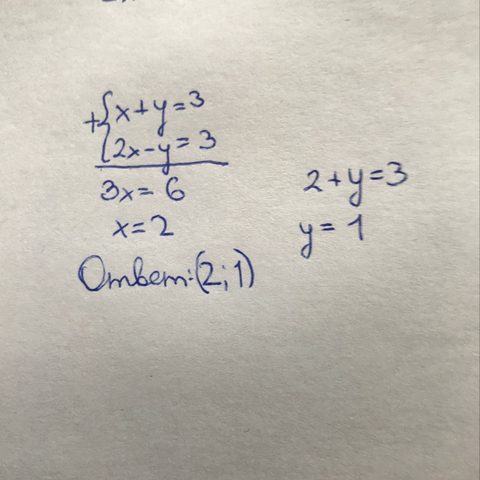 +{x+y=3
2x-y=3
3x=6
x=2
2+y=3
y=1
Ответ:(2;1)